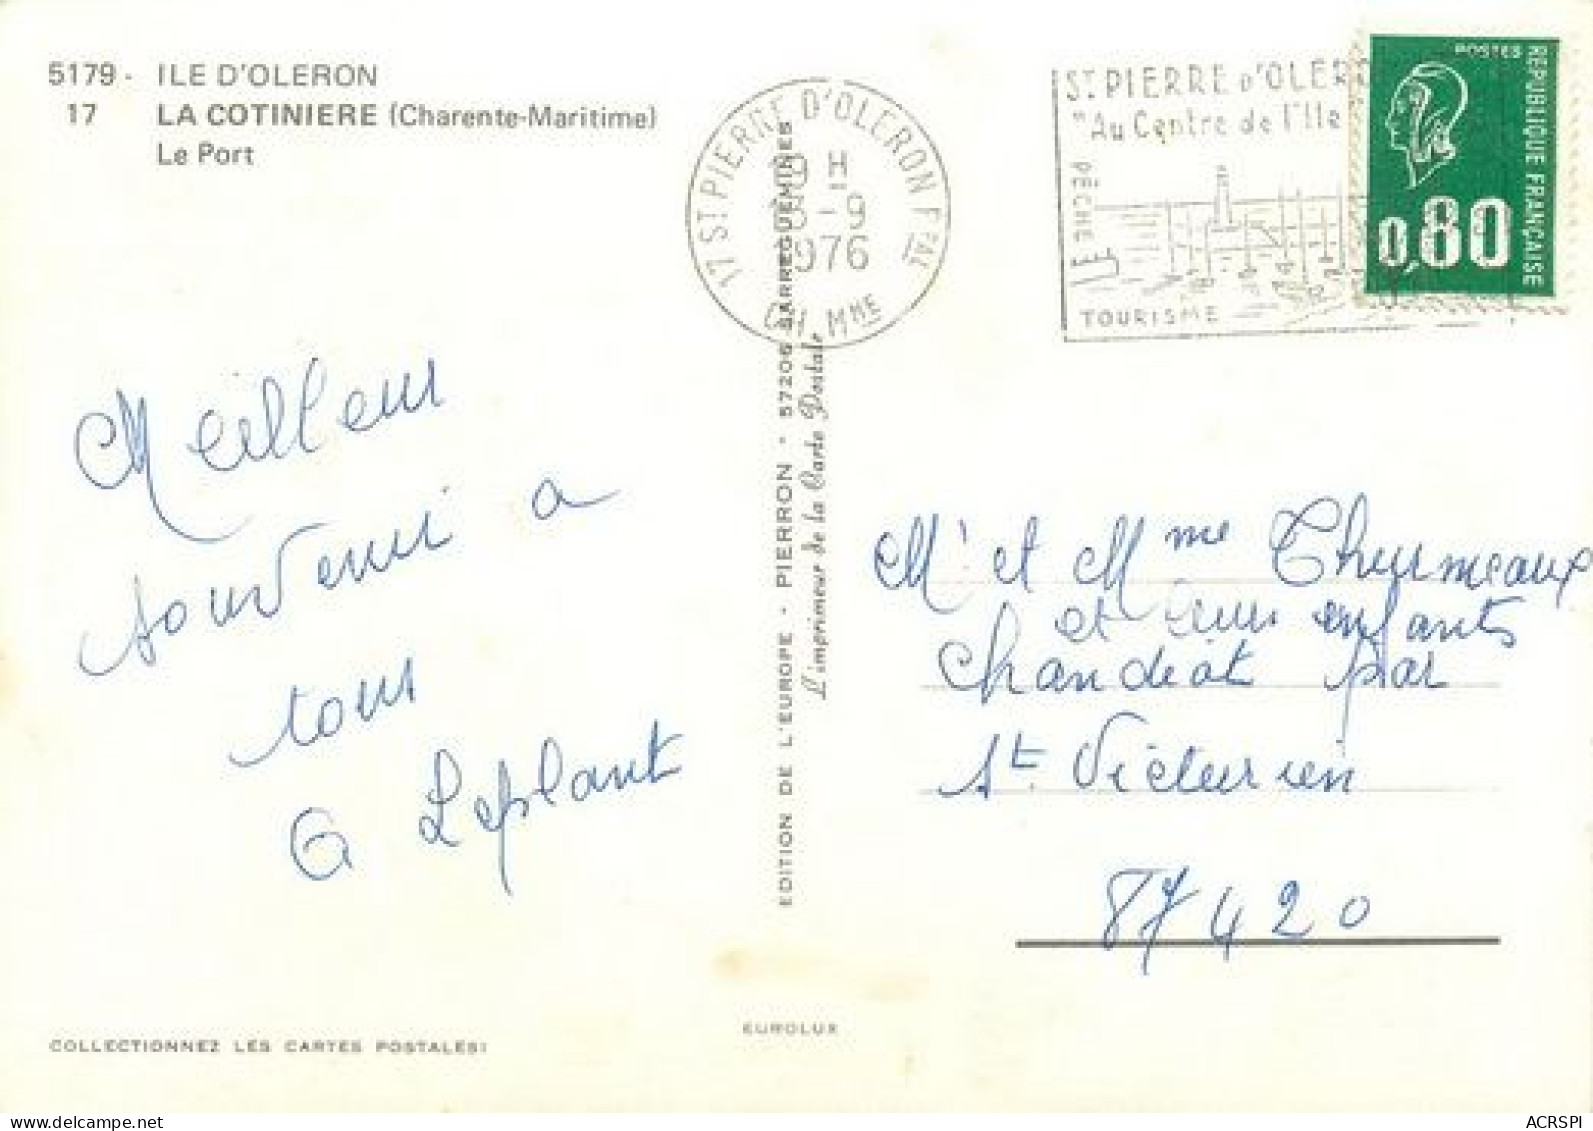 5179 - ILE D'OLERON
17 LA COTINIERE (Charente-Maritime)
Le Port
17 ST PIERRE D'OLERON Pal
H
-9
1976
CH. MME
ST PIERRE D'OLER
"Au Centre de l'Ile
PÊCHE
TOURISME
POSTES
REPUBLIQUE FRANÇAISE
0,80
Meilleur
souvenir a
tous
G Leplant
EDITION DE L'EUROPE - PIERRON - 57206 SARREGUEMINES
L'imprimeur de la Carte Postale
Mr et Mme Thurmeaux
et leurs enfants
Chandiat par
St. Victurnien
87420
EUROLUX
COLLECTIONNEZ LES CARTES POSTALES!
delcampe.net
ACRSPI